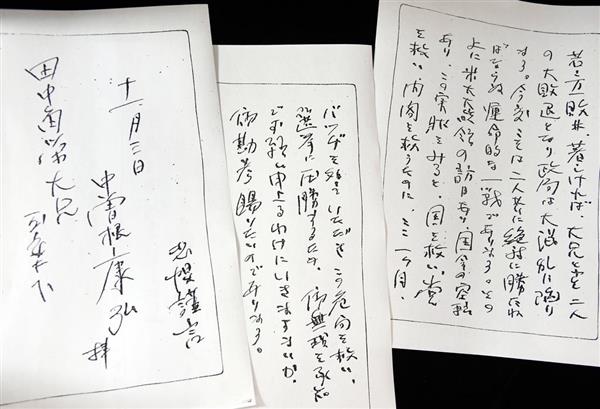 敗北、若しければ、大兄と小生二人
の大敗退となり政局は大混乱に陥り
ます。今度こそは二人共に絶対に勝たね
ばならぬ運命的な一戦であります。その
上に米大統領の訪日あり、国会の空転
あり、この実状をみると、国を救い、党
を救い、内閣を救うために、ここ一ヶ月、
バッヂを いただき、この危局を救い、
選挙に圧勝するため、御無理を承知
でお願い申上るわけにいきませんか。
御勘考賜りたいのであります。
恐惶謹言
中曽根康弘 拝
十一月三日
田中角榮大兄
玉案下